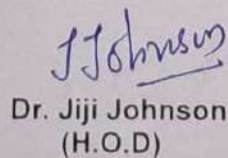 JJohnson
Dr. Jiji Johnson
(H.O.D)